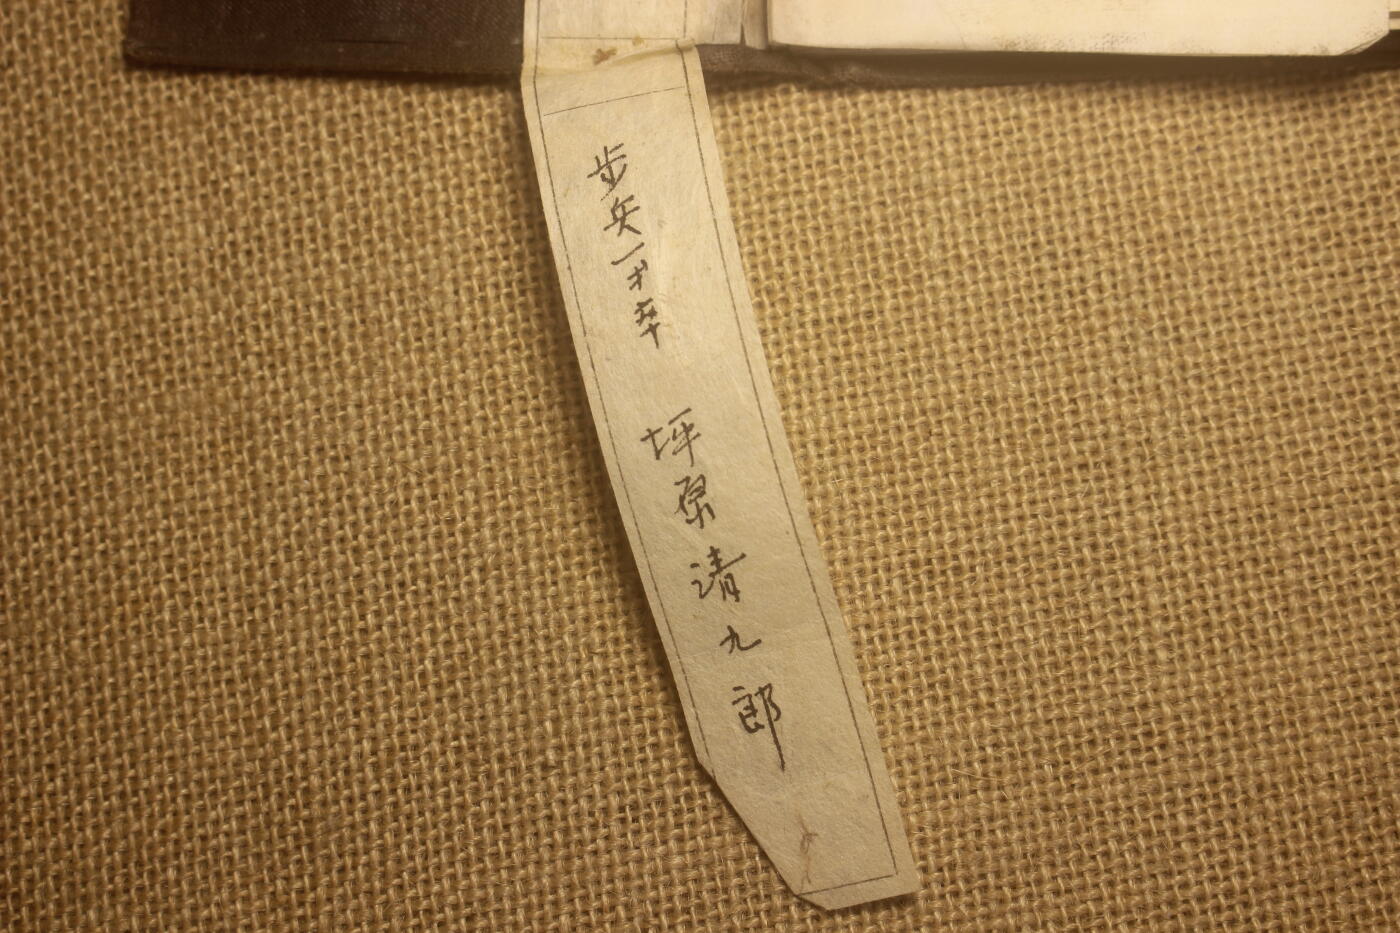 歩兵一才卆 坪原清九郎